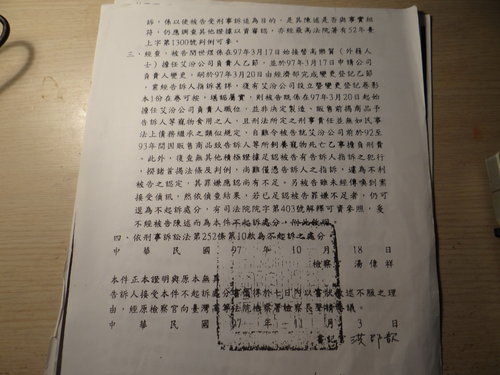 訴，係以使被告受刑事訴追為目的，是其陳述是否與事實相
符，仍應調查其他證據以資審認，亦經最高法院著有52年臺
上字第1300號判例可參。
三、經查，被告閻世傑係在97年3月17日始接替高樂賢（外籍人
士）擔任艾汾公司負責人乙節，並於97年3月17日申請公司
負責人變更，嗣於97年3月20日由經濟部完成變更登記乙節
，業經告訴人指訴甚詳，復有艾汾公司設立暨變更登記卷影
本1份在卷可按，堪認屬實，則被告既係在97年3月20日起始
擔任艾汾公司負責人職位，並非決定製造、販售前揭商品予
告訴人等寵物食用之人，且刑法所定之刑事責任並無如民事
法上債務繼承之類似規定，自難令被告就艾汾公司前於92至
93年間因販售商品致告訴人等所飼養寵物死亡乙事擔負刑責
。此外，復查無其他積極證據足認被告有告訴人指訴之犯行，
揆諸首揭法條及判例，尚難僅憑告訴人之指訴，遽為不利
被告之認定，其罪嫌應認尚有不足。另被告雖未經傳喚到案
接受偵訊，然依偵查結果，若已足認被告罪嫌不足者，仍可
逕為不起訴處分，有司法院院字第403號解釋可資參照，爰
不經被告陳述而為本件不起訴處分，附此敘明。
四、依刑事訴訟法第252條第10款為不起訴之處分。
中 華 民 國 97 年 10 月 18 日
檢察官 湯偉祥
本件正本證明與原本無異
告訴人接受本件不起訴處分書後得於七日內以書狀敘述不服之理
由，經原檢察官向臺灣高等法院檢察署檢察長聲請再議。
中 華 民 國 97 年 11 月 3 日
書記官